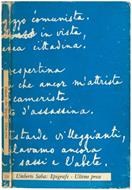 ggio comunista.
in vista,
nea cittadina.
espertina
che ancor m'attrista
camerista
d'assassina.
tarde villeggianti,
lavano ancora
sassi e l'abete.
Umberto Saba: Epigrafe - Ultime prose